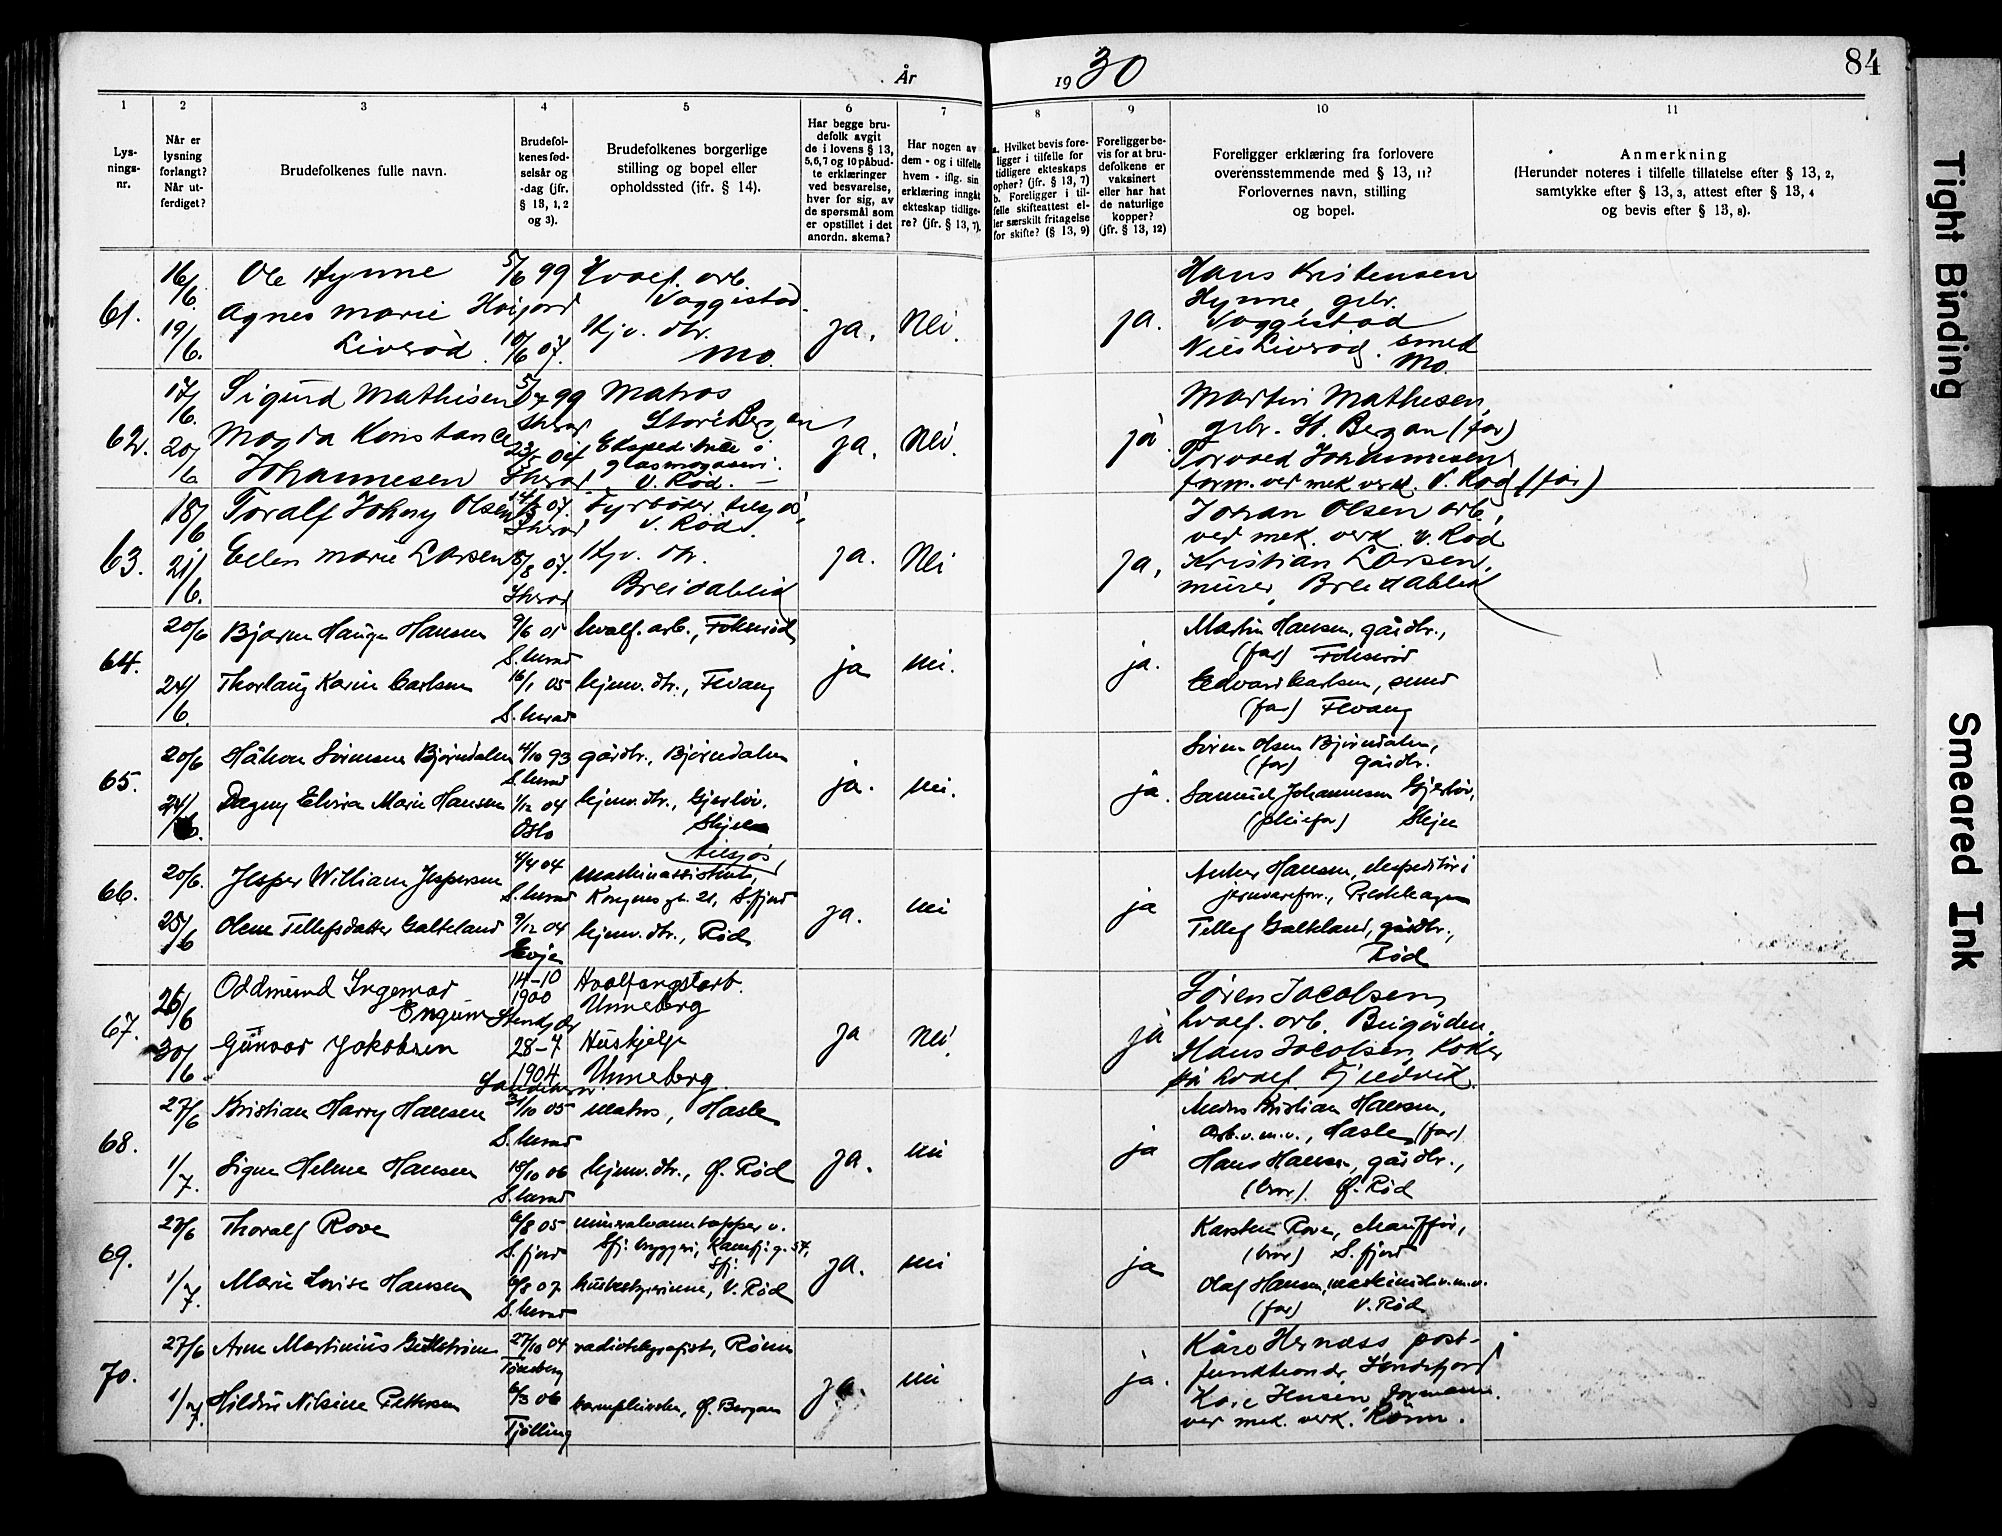 År
19 30
84
1
Lys-
nings-
nr.
2
Når er
lysning
forlangt?
Når ut-
ferdiget?
3
Brudefolkenes fulle navn.
4
Brudefol-
kenes fød-
selsår og
-dag (jfr.
§ 13, 1, 2
og 3).
5
Brudefolkenes borgerlige
stilling og bopel eller
opholdssted (jfr. § 14).
6
Har begge bru-
defolk avgit
de i lovens § 13,
5,6,7 og 10 påbud-
te erklæringer
ved besvarelse,
hver for sig, av
de spørsmål som
er opstillet i det
anordn. skema?
7
Har nogen av
dem - og i tilfelle
hvem - iflg. sin
erklæring inngåt
ekteskap tidlige-
re? (jfr. § 13, 7).
8
a. Hvilket bevis fore-
ligger i tilfelle for
tidligere ekteskaps
ophør? (jfr. § 13, 7)
b. Foreligger i til-
felle skifteattest el-
ler særskilt fritagelse
for skifte? (§ 13, 9)
9
Foreligger be-
vis for at bru-
defolkene er
vaksinert
eller har hat
de naturlige
kopper?
(jfr. § 13, 12)
10
Foreligger erklæring fra forlovere
overensstemmende med § 13, 11?
Forlovernes navn, stilling
og bopel.
11
Anmerkning
(Herunder noteres i tilfelle tillatelse efter § 13, 2,
samtykke efter § 13, 3, attest efter § 13, 4
og bevis efter § 13, 8).
61.
16/6.
19/6.
Ole Hynne
5/6 99
Hvalf. arb.
Agnes Marie
Livsrød
10/6 07.
Hjv. dtr.
Mo.
ja.
Nei.
ja.
Hans Kristensen
Hynne, gbr.
Livsrød. smed
Mo.
62.
17/6.
20/6
Sigurd Mathisen
99
Matros
Store Bergan
Magda Konstance
Johannesen
Ekspeditrice i
glasmagasin.
V. Rød.
ja.
Nei.
ja
Martin Mathisen,
gbr. St. Bergan (far)
Torvald Johannesen
form. ved mek verk. V. Rød (far)
63.
18/6
21/6.
Toralf Johny Olsen
07.
Fyrbøter tilsjøs,
V. Rød.
Ellen Marie Larsen
8/8 07.
Hjv. dtr.
Breidablik
ja.
Nei
ja.
Johan Olsen arb.
ved mek. verk. V. Rød
Kristian Larsen,
murer, Breidablik
64.
20/6
24/6.
Bjarne Haugen Hansen
S.herad
hvalf. arb., Fokserød
Thorlaug Karin Carlsen
16/1 05
S. herad
hjemv. dtr., Fevang
ja
nei.
ja.
Martin Hansen, gårdbr.,
(far) Fokserød
Edvard Carlsen, smed
(far) Fevang
65.
20/6
24/6.
Håkon Sørensen Bjørndalen
4/10 93
S. herad
gårdbr., Bjørndalen
Dagny Elvira Marie Hansen
1/12 04
Oslo
hjemv. dtr., Gjerløv.
Skjee
ja.
nei.
ja.
Søren Olsen Bjørndalen,
(far) gårdbr.
Samuel Johannesen Gjerløv,
(pleiefar) Skjee
66.
20/6.
25/6
Jesper William Jespersen
4/4 04
S. herad
tilsjøs
maskinassistent,
Kongensgt. 21, S.fjord
Olene Tellefsdatter Galteland
9/12 04
Evje
hjemv. dtr., Rød
ja.
nei
ja
Anker Hansen, ekspeditør i
jernvareforr., Preståsen
Tellef Galteland, gårdbr.,
Rød
67.
26/6
30/6
Oddmund Ingemar
Engum
14-10
1900
Hvalfangstarb.
Unneberg
Gunvor Jakobsen
28-7
1904
Hushjelp
Unneberg.
ja
Nei
ja
Søren Jacobsen,
hvalf. arb. Beigården.
Hans Jacobsen, Koker
på hvalf.
68.
27/6
1/7.
Kristian Harry Hansen
31/10 05
S. herad
matros, Hasle
Signe Helene Hansen
18/10 06
S. herad
hjemv. dtr., Ø. Rød
ja.
nei
ja
Anders Kristian Hansen,
Arb. v. m. v., Hasle (far)
Hans Hansen, gårdbr.,
(bror). Ø. Rød
69.
27/6
1/7.
Thoralf Rove
6/8 05
S. fjord
mineralvanntapper v.
Sfj. bryggeri, Kamfj. g. 57,
Sfj.
Marie Lovise Hansen
6/8 07
S. herad
husbestyrerinne, V. Rød
ja.
nei
ja
Karsten Rove, chauffør,
(bror) S. fjord
Olaf Hansen, maskinist v. m. v.
(far) V. Rød
70.
27/6
1/7.
Arne Martinius
27/10 04
Tønsberg
radiotelegrafist, Rønn
Hildur Nilsine Pettersen
6/3 06
Tjølling
Ø. Bergan
ja.
nei
ja.
Kåre Hernæss post-
funktionær, Sandefjord
formann
ved mek. verk. Rønn.
Tight Binding
Smeared Ink